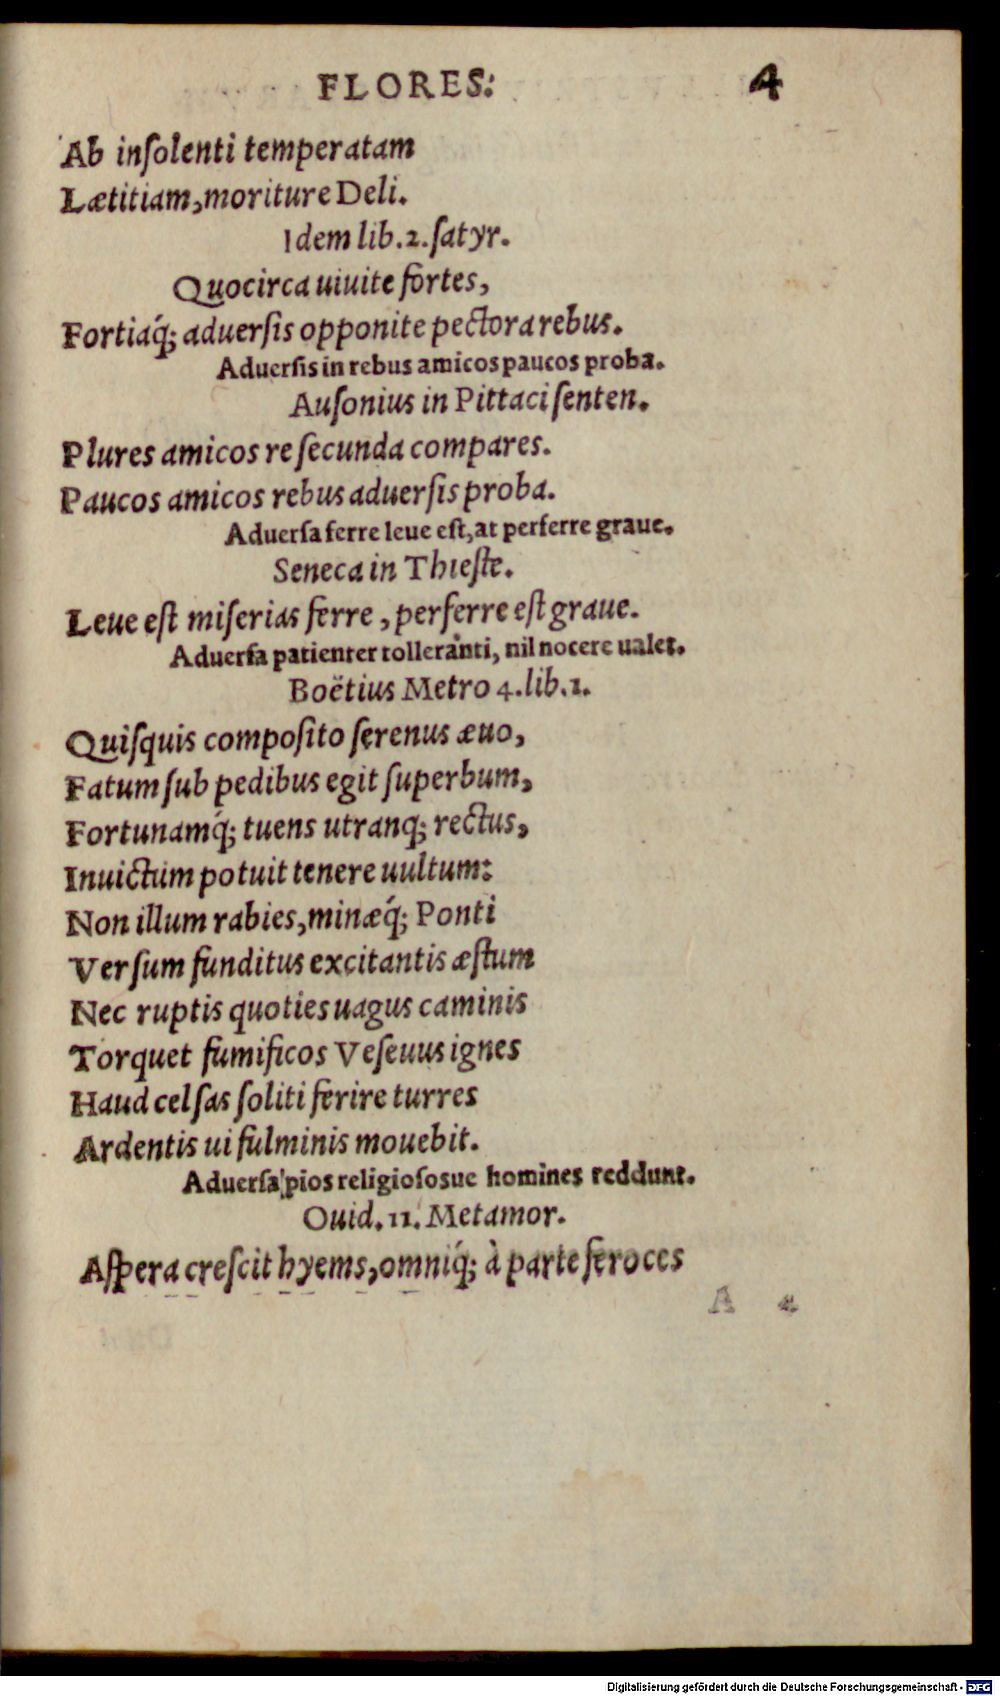 FLORES:
4
Ab inſolenti temperatam
Lætitiam, moriture Deli.
Idem lib. 2. ſatyr.
Quocirca uiuite fortes,
Fortiaq́; aduerſis opponite pectora rebus.
Aduerſis in rebus amicos paucos proba.
Auſonius in Pittaci ſenten.
Plures amicos re ſecunda compares.
Paucos amicos rebus aduerſis proba.
Aduerſa ferre leue eſt, at perferre graue.
Seneca in Thieſte.
Leue eſt miſerias ferre, perferre eſt graue.
Aduerſa patienter tolleranti, nil nocere ualet.
Boëtius Metro 4. lib. 1.
Quiſquis compoſito ſerenus æuo,
Fatum ſub pedibus egit ſuperbum,
Fortunamq́; tuens utranq; rectus,
Inuictum potuit tenere uultum:
Non illum rabies, minæq́; Ponti
Verſum funditus excitantis æſtum
Nec ruptis quoties uagus caminis
Torquet fumificos Veſeuus ignes
Haud celſas ſoliti ferire turres
Ardentis ui fulminis mouebit.
Aduerſa pios religioſosue homines reddunt.
Ouid. 11. Metamor.
Aſpera creſcit hyems, omniq́; à parte feroces
A 4
Digitalisierung gefördert durch die Deutsche Forschungsgemeinschaft - DFG